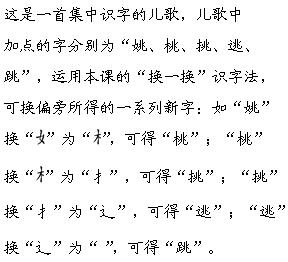 这是一首集中识字的儿歌，儿歌中
加点的字分别为“姚、桃、挑、逃、
跳”，运用本课的“换一换”识字法，
可换偏旁所得的一系列新字：如“姚”
换“女”为“木”，可得“桃”；“桃”
换“木”为“扌”，可得“挑”；“挑”
换“扌”为“辶”，可得“逃”；“逃”
换“辶”为“ ”，可得“跳”。